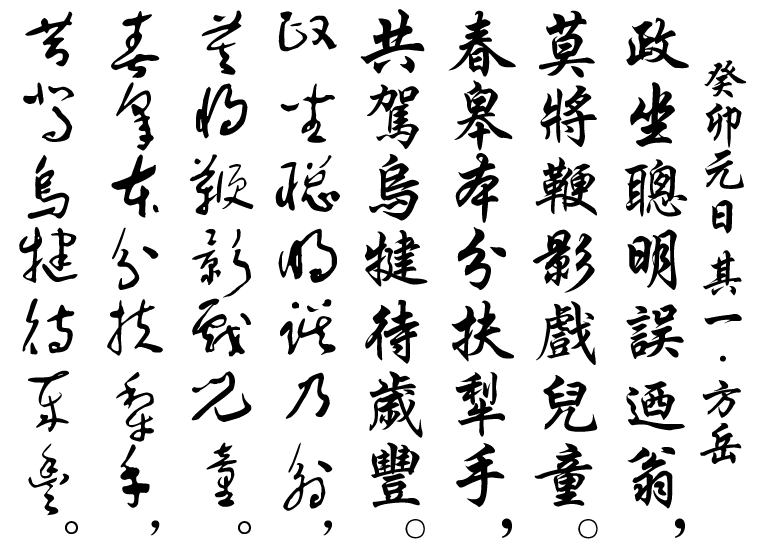 癸卯元日 其一·方岳
政坐聰明誤迺翁，
莫將鞭影戲兒童。
春皋本分扶犁手，
共駕烏犍待歲豐。
政坐聰明誤乃翁，
莫將鞭影戲兒童。
春皋本分扶犁手，
共駕烏犍待歲豐。